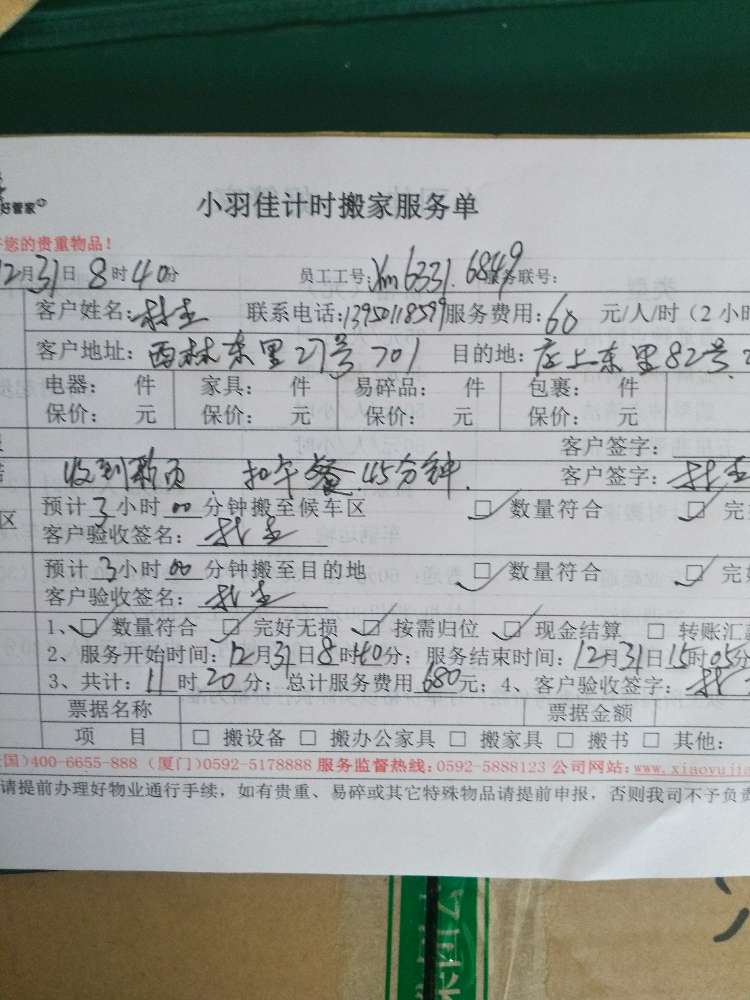 好管家
小羽佳计时搬家服务单
您的贵重物品！
12月31日8时40分 员工工号：Xm6331.6849 服务联号：
客户姓名： 联系电话：13950118599 服务费用：60 元/人/时（2小时
客户地址：西林东里27号701 目的地：店上东里82号
电器： 件 家具： 件 易碎品： 件 包裹： 件
保价： 元 保价： 元 保价： 元 保价： 元
客户签字：
收到 扣午餐45分钟. 客户签字：
区 预计3小时00分钟搬至候车区 ☑ 数量符合 ☑ 完
客户验收签名：
预计3小时00分钟搬至目的地 ☑ 数量符合 ☑ 完好
客户验收签名：
1、☑ 数量符合 ☑ 完好无损 ☑ 按需归位 ☑ 现金结算 □ 转账汇款
2、服务开始时间：12月31日8时40分；服务结束时间：12月31日15时05分
3、共计：11时20分；总计服务费用680元；4、客户验收签字：
票据名称 票据金额
项 目 □ 搬设备 □ 搬办公家具 □ 搬家具 □ 搬书 □ 其他：
国）400-6655-888（厦门）0592-5178888 服务监督热线：0592-5888123 公司网站：www.xiaoyujia
请提前办理好物业通行手续，如有贵重、易碎或其它特殊物品请提前申报，否则我司不予负责